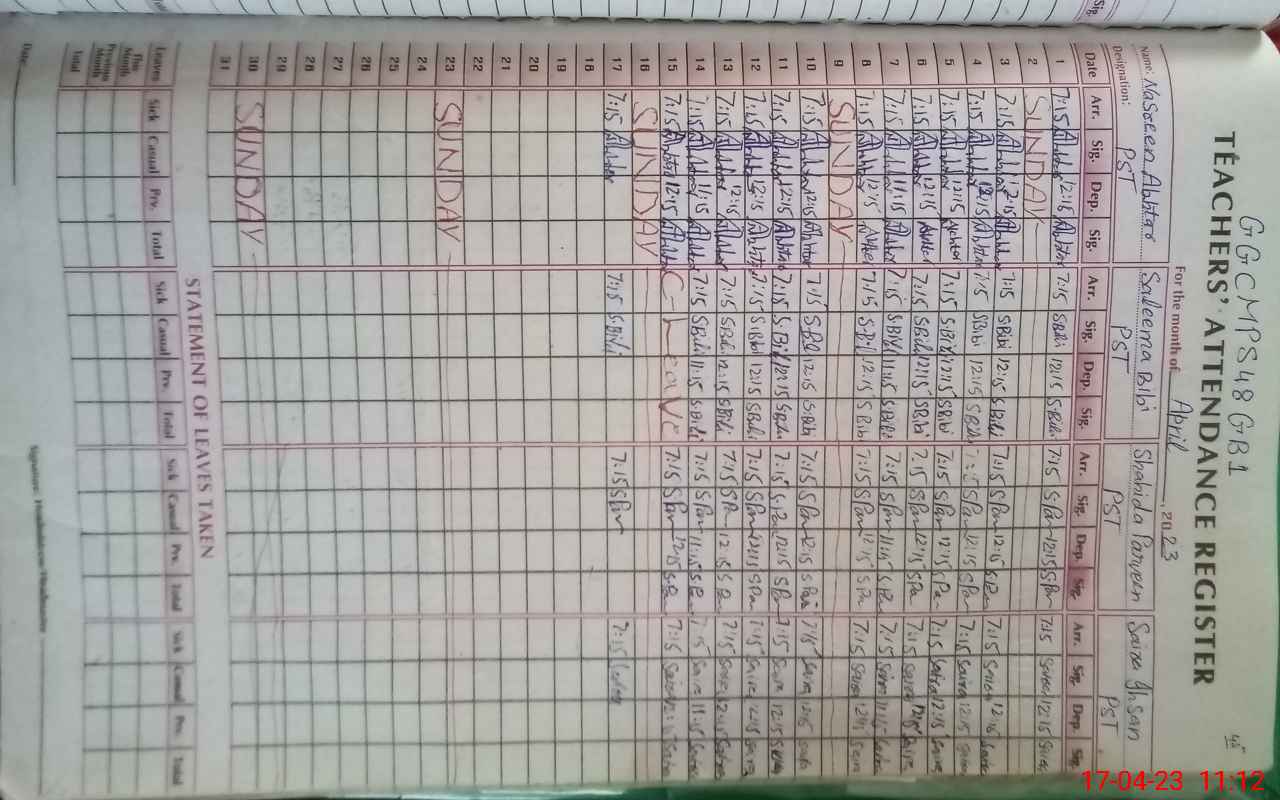 GGCMPS 48 GB1
TEACHERS' ATTENDANCE REGISTER
For the month of April, 2023
Name: Nasreen Akhtar Saleema Bibi Shahida Parveen Saira Ihsan
Designation: PST PST PST PST
Date Arr. Sig. Dep. Sig. Arr. Sig. Dep. Sig. Arr. Sig. Dep. Sig. Arr. Sig. Dep. Sig.
1 7:15 Akhtar 12:15 Akhtar 7:15 S.Bibi 12:15 S.Bibi 7:15 S Par 12:15 S Par 7:15 Saira 12:15 Saira
2 SUNDAY
3 7:15 Akhtar 12:15 Akhtar 7:15 S Bibi 12:15 S Bibi 7:15 S Par 12:15 S Par 7:15 Saira 12:15 Saira
4 7:15 Akhtar 12:15 Akhtar 7:15 S Bibi 12:15 S Bibi S Par 12:15 S Par 7:15 Saira 12:15 Saira
5 7:15 Akhtar 12:15 Akhtar 7:15 S Bibi 12:15 S Bibi 7:15 S Par 12:15 S Par 7:15 Saira 12:15 Saira
6 7:15 Akhtar 12:15 Akhtar 7:15 S Bibi 12:15 S Bibi 7:15 S Par 12:15 S Pa 7:15 Saira 12:15 Saira
7 7:15 Akhtar 11:15 Akhtar 7:15 S Bibi 11:15 S Bibi 7:15 S Par 11:15 S Par 7:15 Saira 11:15 Saira
8 7:15 Akhtar 12:15 7:15 S Bi 12:15 S Bibi 7:15 S Par 12:15 S Pa 7:15 Saira 12:15 Saira
9 SUNDAY
10 7:15 Akhtar 12:15 Akhtar 7:15 S Bi 12:15 S Bibi 7:15 S Par 12:15 S Par 7:15 Saira 12:15 Saira
11 7:15 Akhtar 12:15 Akhtar 7:15 S Bibi 12:15 S Bibi 7:15 S Par 12:15 S Par 7:15 Saira 12:15 Saira
12 7:15 Akhtar 12:15 Akhtar 7:15 S Bibi 12:15 S Bibi 7:15 S Par 12:15 S Par 7:15 Saira 12:15 Saira
13 7:15 Akhtar 12:15 Akhtar 7:15 S Bibi 12:15 S Bibi 7:15 S Par 12:15 S Par 7:15 Saira 12:15 Saira
14 7:15 Akhtar 11:15 Akhtar 7:15 S Bibi 11:15 S Bibi 7:15 S Par 11:15 S Par 7:15 Saira 11:15 Saira
15 7:15 Akhtar 12:15 Akhtar C-Leave 7:15 S Par 12:15 S Par 7:15 Saira Saira
16 SUNDAY
17 7:15 Akhtar 7:15 S.Bibi 7:15 S Par 7:15 Saira
18
19
20
21
22
23 SUNDAY
24
25
26
27
28
29
30 SUNDAY
31
STATEMENT OF LEAVES TAKEN
Leaves Sick Casual Prv. Total Sick Casual Prv. Total Sick Casual Prv. Total Sick Casual Prv. Total
This Month
Previous Month
Total
Date:
Signature: Headmistress/Headmaster
17-04-23 11:12